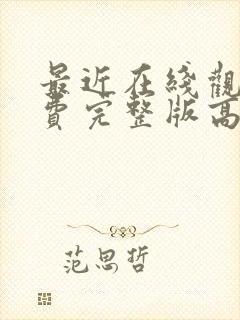 最近在线觀
費完整版高
范思哲